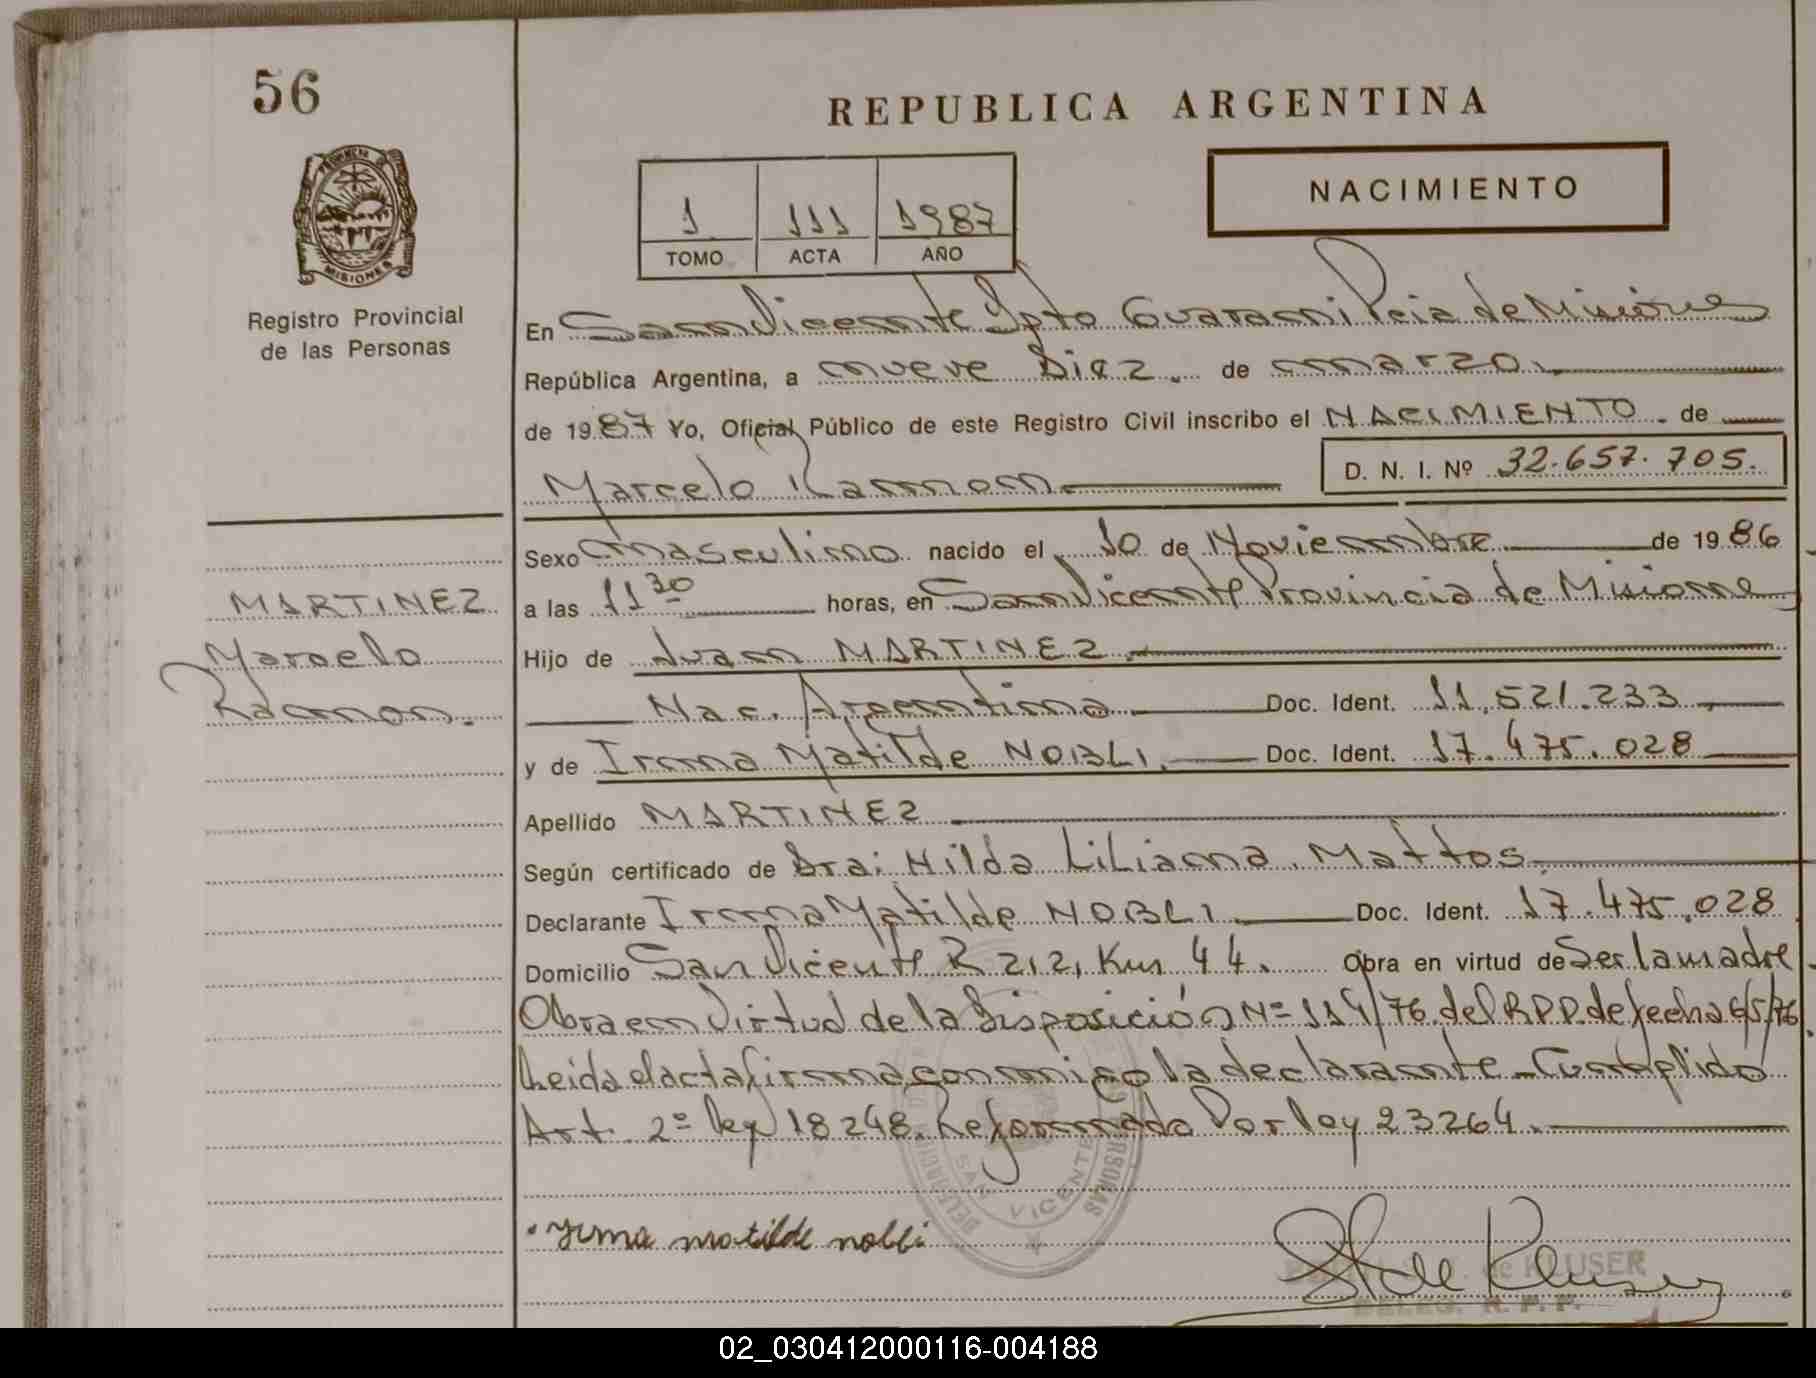 56
REPUBLICA ARGENTINA
PROVINCIA DE
MISIONES
Registro Provincial
de las Personas
1 111 1987
TOMO ACTA AÑO
NACIMIENTO
En San Vicente Dpto Guarani Pcia de Misiones
República Argentina, a nueve Diez. de marzo.
de 1987 Yo, Oficial Público de este Registro Civil inscribo el NACIMIENTO. de
Marcelo Ramon.
D. N. I. Nº 32.657.705.
Sexo masculino nacido el 10 de Noviembre de 1986
a las 11 30 horas, en San Vicente Provincia de Misiones
MARTINEZ
Marcelo
Ramon.
Hijo de Juan MARTINEZ.
Nac. Argentino Doc. Ident. 11.521.233
y de Irma Matilde NOBLI. Doc. Ident. 17.475.028
Apellido MARTINEZ
Según certificado de Dra: Hilda Liliana Mattos
Declarante Irma Matilde NOBLI Doc. Ident. 17.475.028
Domicilio San Vicente R 212, Km 44. Obra en virtud de Ser la madre
Obra en Virtud de la Disposición Nº 114/76 del R.P.P. de fecha 6/5/76
Leida el acta firma conmigo la declarante - Cumplido
Art. 2º ley 18248. Reformado Por ley 23264.
SAN VICENTE
Irma matilde nobli
de KLUSER
DELEG. R. P. P.
02_030412000116-004188